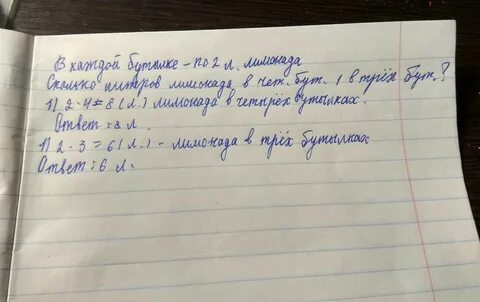 В каждой бутылке - по 2 л. лимонада
Сколько литров лимонада в чет. бут. , в трёх бут.?
1) 2 · 4 = 8 (л.) лимонада в четырёх бутылках.
Ответ: 8 л.
1) 2 · 3 = 6 (л.) - лимонада в трёх бутылках
Ответ: 6 л.